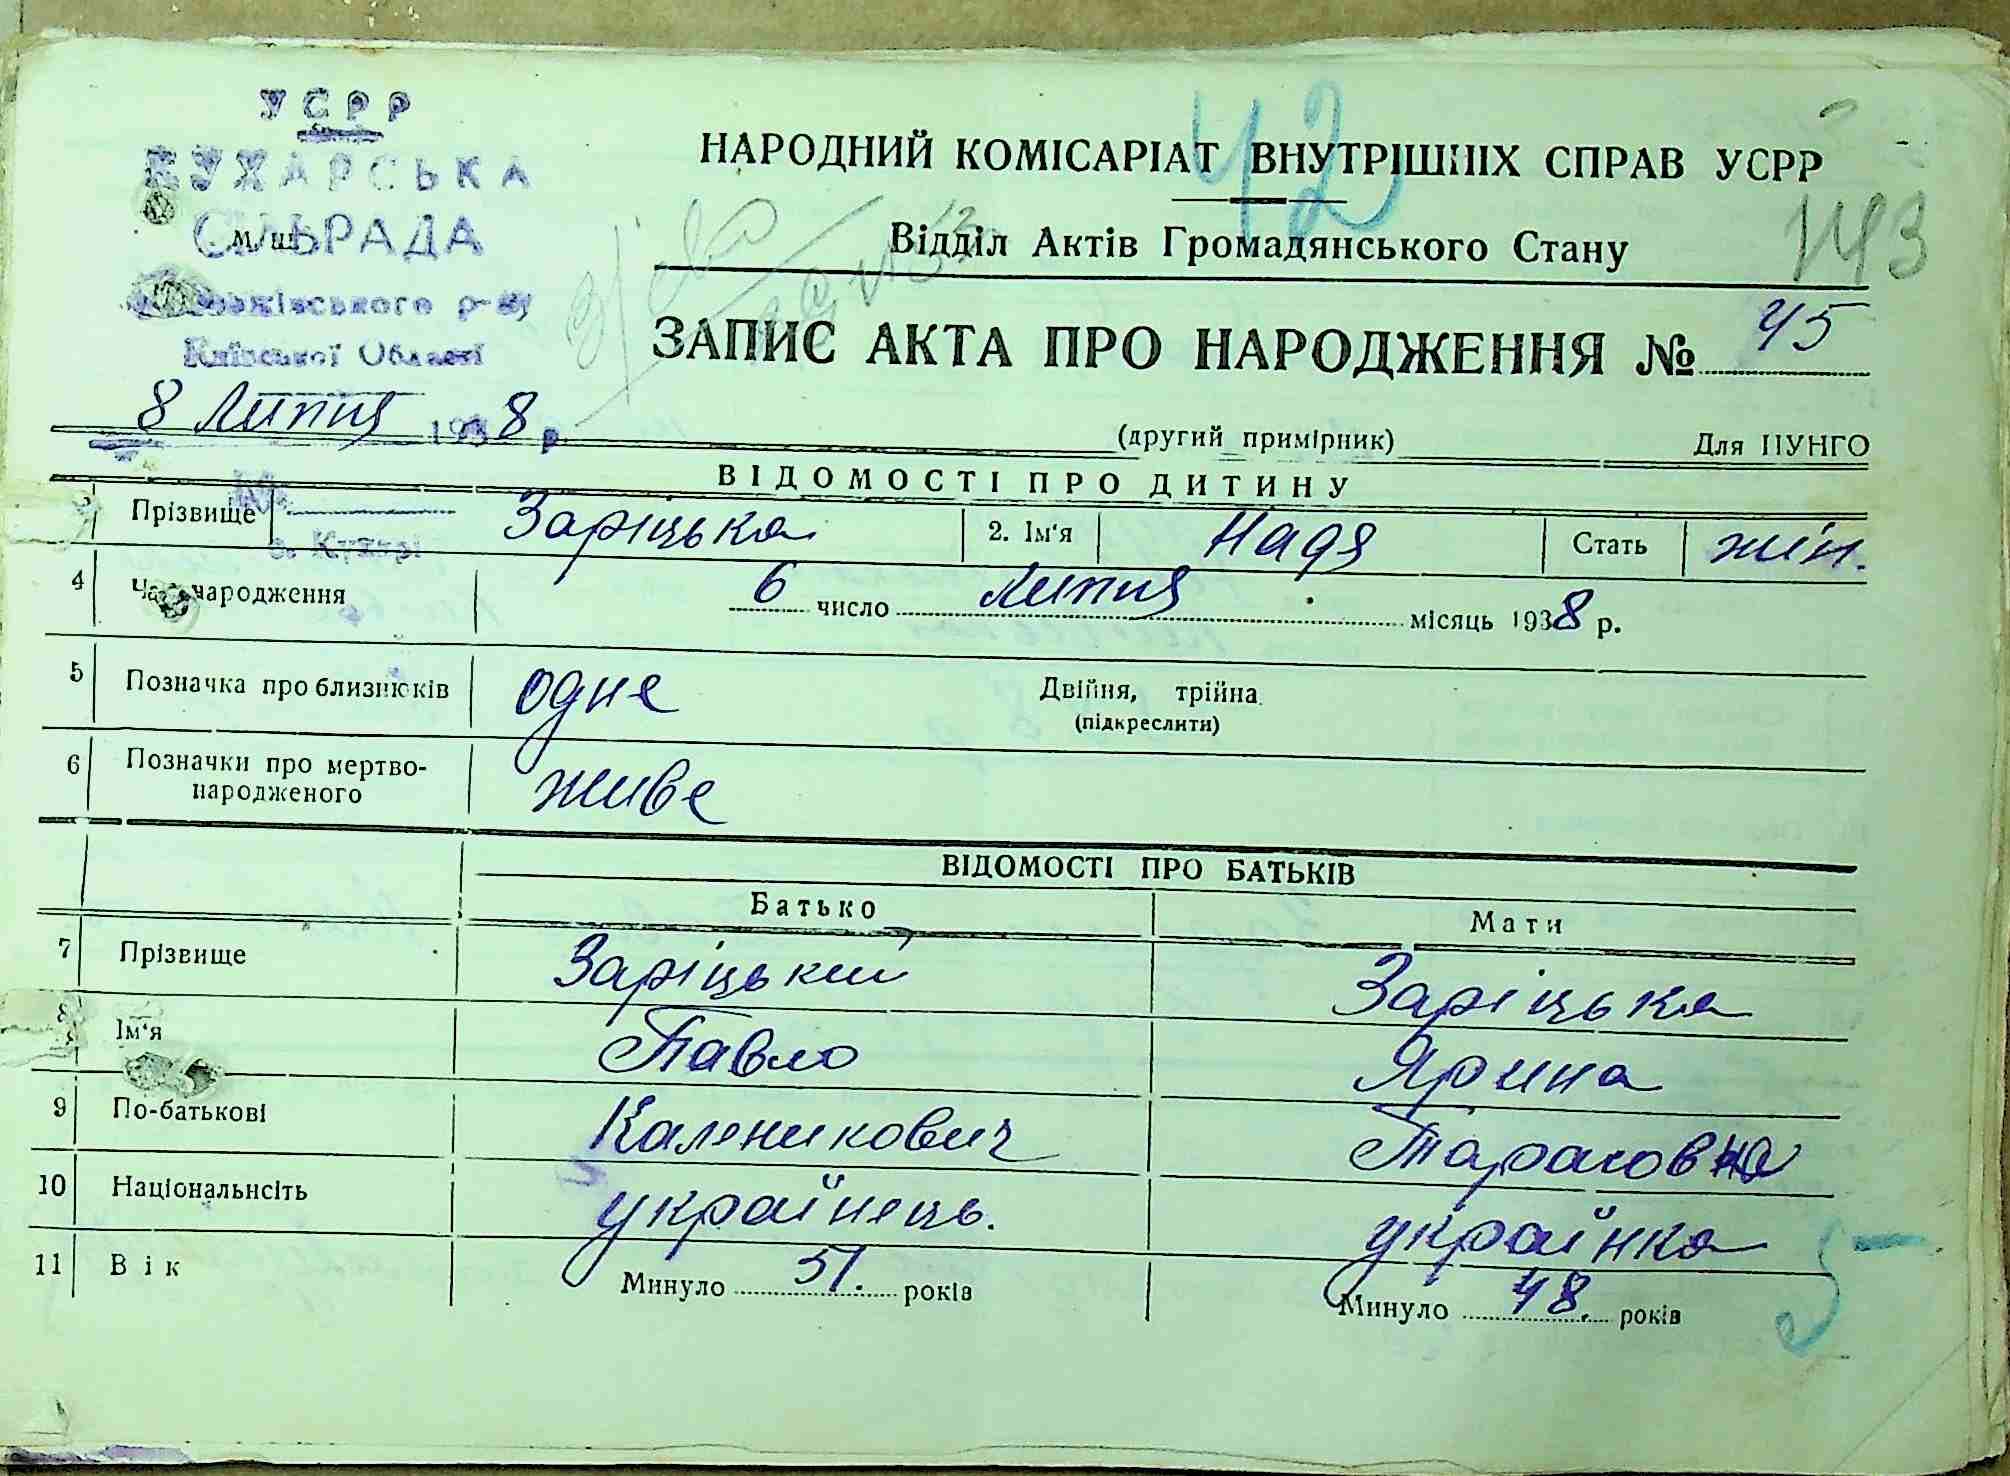 УСРР
КУХАРСЬКА
СІЛЬРАДА
р-ну
Київської Області
8 Липня 1938 р.
42
НАРОДНИЙ КОМІСАРІАТ ВНУТРІШНІХ СПРАВ УСРР
143
Відділ Актів Громадянського Стану
ЗАПИС АКТА ПРО НАРОДЖЕННЯ № 45
(другий примірник) Для ПУНГО
ВІДОМОСТІ ПРО ДИТИНУ
Прізвище Заріцька 2. Ім'я Надя Стать жін.
с. Кухарі
4 Час народження 6 число Липня місяць 1938 р.
5 Позначка про близнюків одне Двійня, трійна
(підкреслити)
6 Позначки про мертво-
народженого живе
ВІДОМОСТІ ПРО БАТЬКІВ
Батько Мати
7 Прізвище Заріцький Заріцька
8 Ім'я Павло Ярина
9 По-батькові Каленикович Тарасовна
10 Національнсіть українець. українка
11 Вік Минуло 51. років Минуло 48. років
5